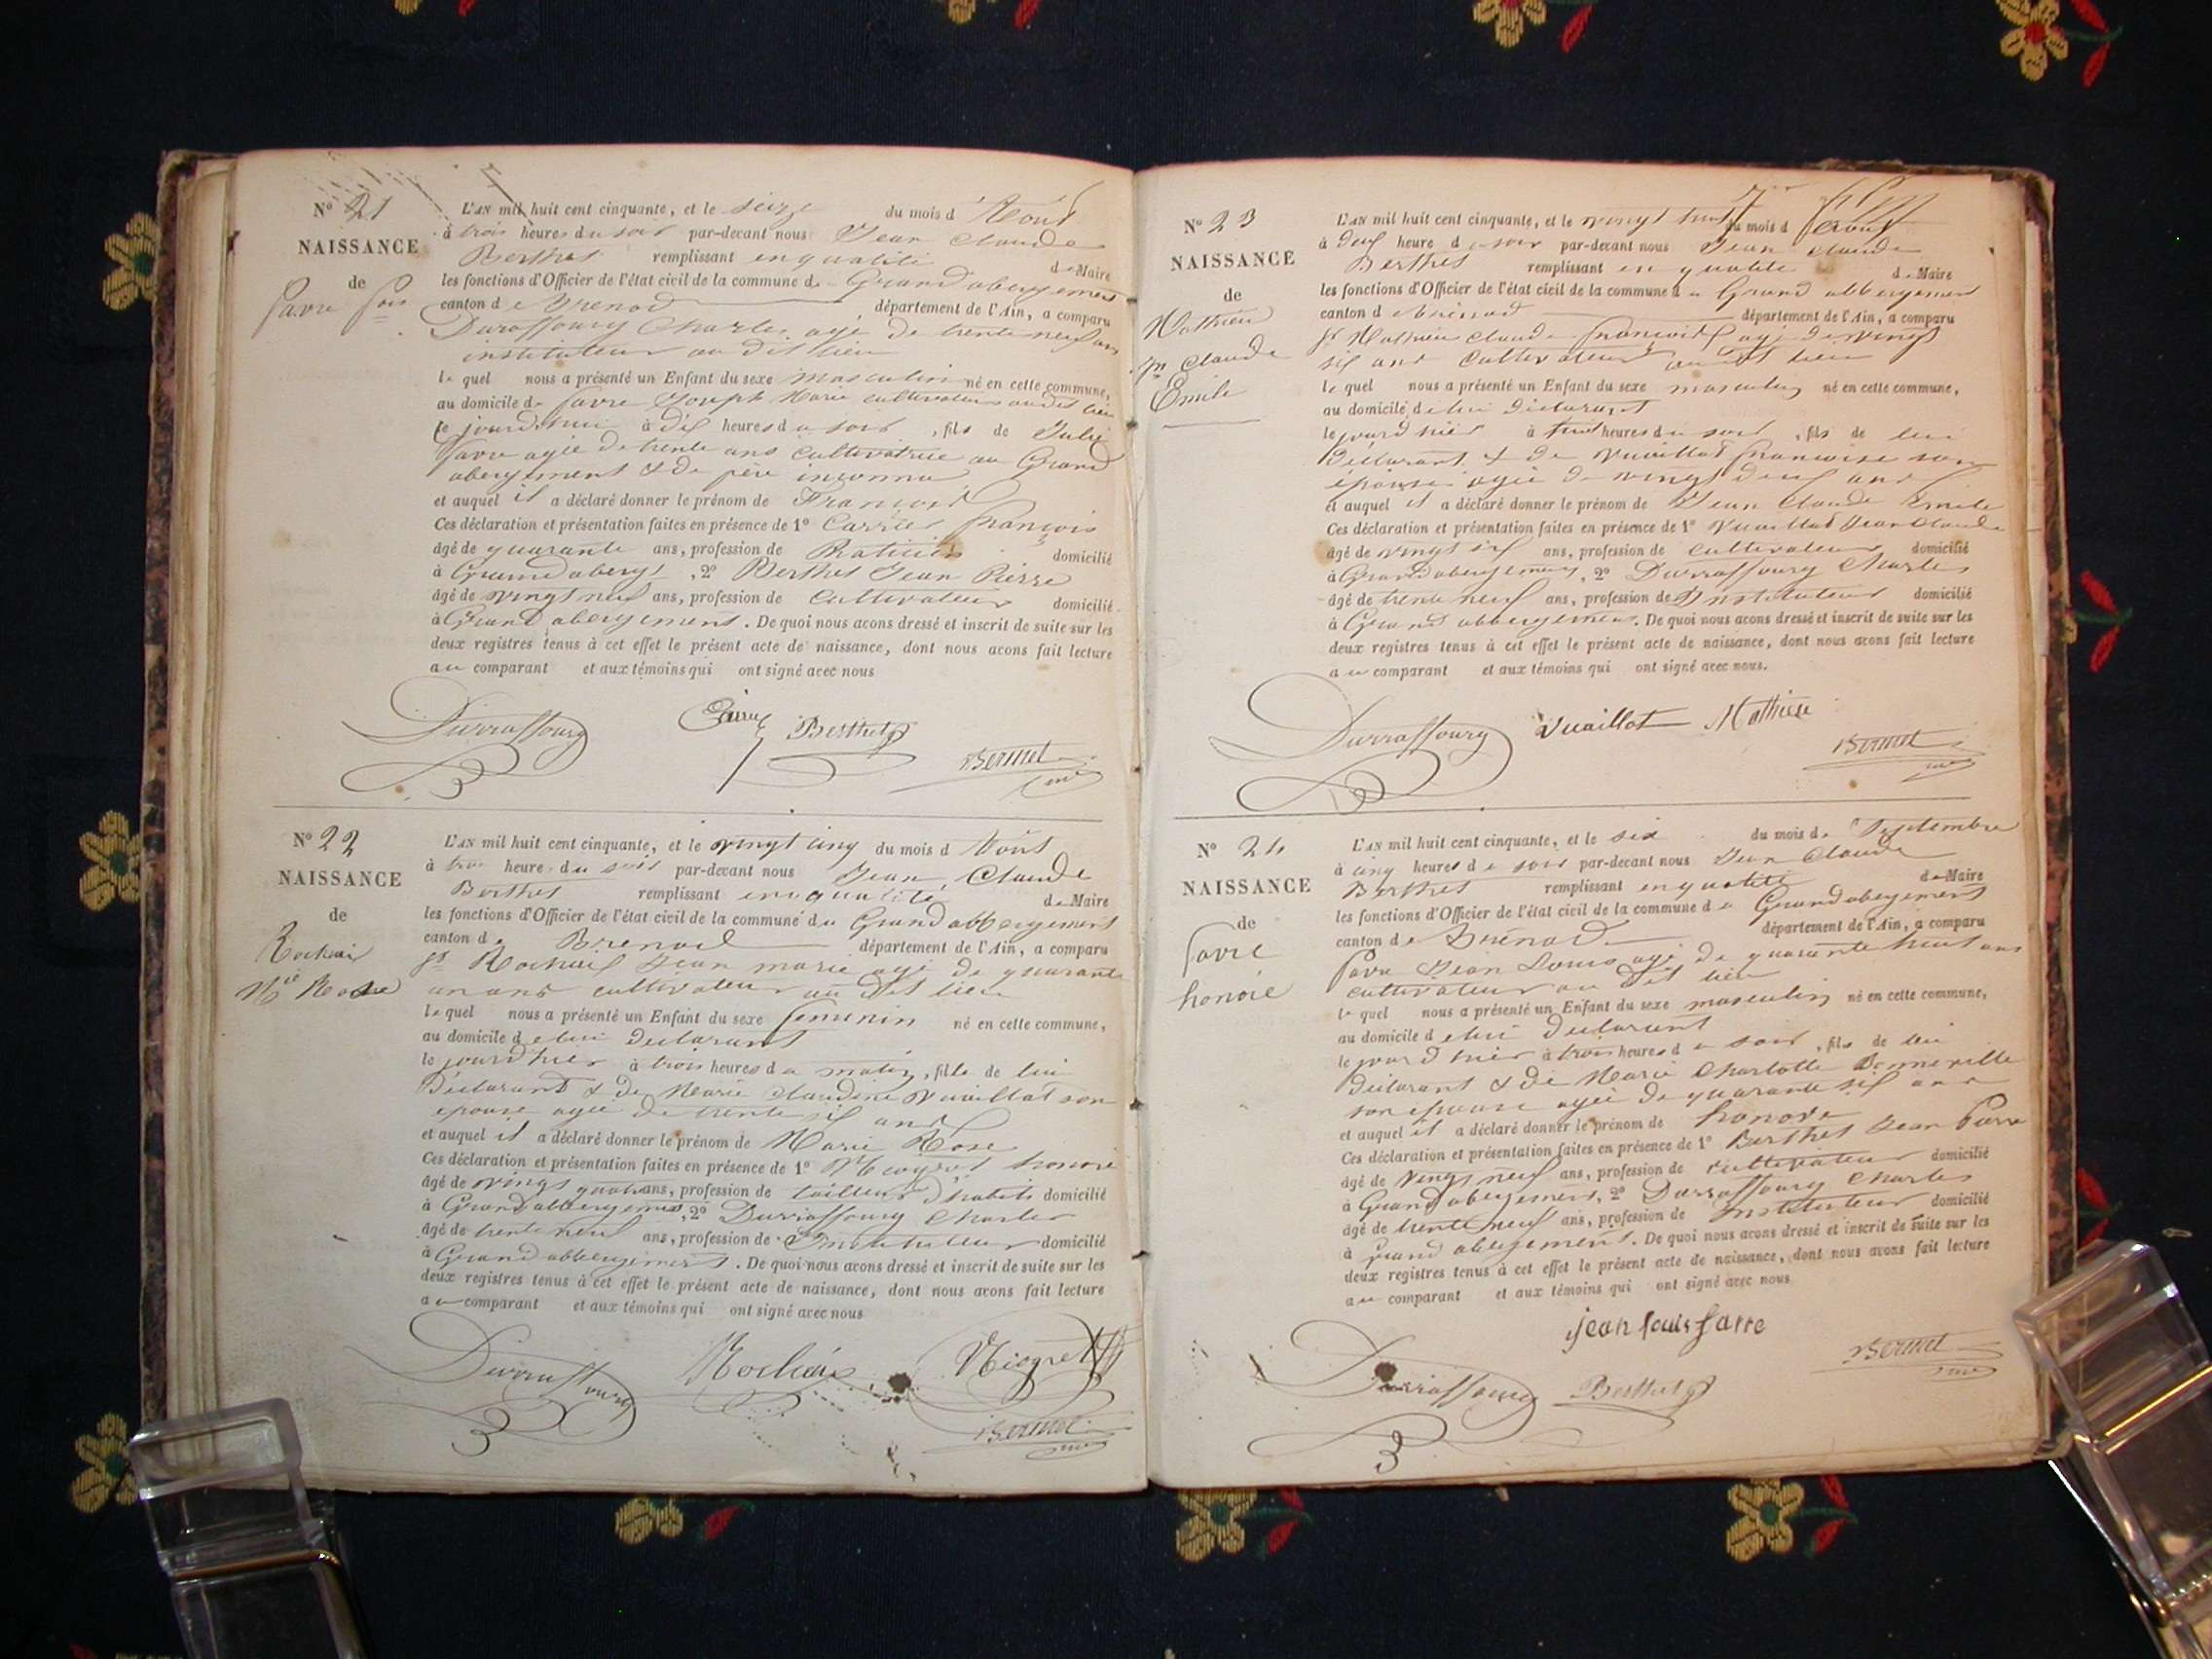 N° 21
NAISSANCE
de
favre fois
L'AN mil huit cent cinquante, et le seize du mois d'Aout
à trois heures du soir par-devant nous Jean Claude
Berthet remplissant en qualité de Maire
les fonctions d'Officier de l'état civil de la commune de Grand abergement
canton de Brenod département de l'Ain, a comparu
Durraffourg Charles agé de trente neuf ans
instituteur au dit lieu
le quel nous a présenté un Enfant du sexe masculin né en cette commune,
au domicile de favre Joseph Marie cultivateur au dit lieu
le jourd'hui à dix heures du soir, fils de Julie
favre agée de trente ans cultivatrice au Grand
abergement & de père inconnu
et auquel il a déclaré donner le prénom de François
Ces déclaration et présentation faites en présence de 1° Carrier françois
âgé de quarante ans, profession de Praticien domicilié
à Grand aberg.t, 2° Berthet Jean Pierre
âgé de vingt neuf ans, profession de cultivateur domicilié
à Grand abergement. De quoi nous avons dressé et inscrit de suite sur les
deux registres tenus à cet effet le présent acte de naissance, dont nous avons fait lecture
au comparant et aux témoins qui ont signé avec nous
Durraffourg Berthet
Berthet
N° 22
NAISSANCE
de
Rochaix
M.ie Rose
L'AN mil huit cent cinquante, et le vingt cinq du mois d Aout
à trois heures du soir par-devant nous Jean Claude
Berthet remplissant en qualité de Maire
les fonctions d'Officier de l'état civil de la commune de Grand abbergement
canton de Brenod département de l'Ain, a comparu
st Rochaix Jean marie agé de quarante
un ans cultivateur au dit lieu
le quel nous a présenté un Enfant du sexe feminin né en cette commune,
au domicile de lui declarant
le jourd'hier à trois heures du matin, fille de lui
Déclarant & de Marie Claudine Vuaillat son
epouse agée de trente six ans
et auquel il a déclaré donner le prénom de Marie Rose
Ces déclaration et présentation faites en présence de 1° honoré
âgé de vingt quatre ans, profession de tailleur d'habits domicilié
à Grand abbergement, 2° Durraffourg Charles
âgé de trente neuf ans, profession de Instituteur domicilié
à Grand abbergement. De quoi nous avons dressé et inscrit de suite sur les
deux registres tenus à cet effet le présent acte de naissance, dont nous avons fait lecture
au comparant et aux témoins qui ont signé avec nous
Durraffourg Rochaix
Berthet
N° 23
NAISSANCE
de
Mathieu
Jn Claude
Emile
L'AN mil huit cent cinquante, et le vingt huit du mois d Aout
à deux heure de soir par-devant nous Jean Claude
Berthet remplissant en qualité de Maire
les fonctions d'Officier de l'état civil de la commune de Grand abbergement
canton de Brénod département de l'Ain, a comparu
st Mathieu Claude françois agé de vingt
six ans Cultivateur au dit lieu
le quel nous a présenté un Enfant du sexe masculin né en cette commune,
au domicile de lui déclarant
le jourd'hier à huit heures du soir, fils de lui
Déclarant & de Vuaillat françoise son
épouse agée de vingt deux ans
et auquel il a déclaré donner le prénom de Jean Claude Emile
Ces déclaration et présentation faites en présence de 1° Vuaillat Jean Claude
âgé de vingt six ans, profession de cultivateur domicilié
à Grand abergement, 2° Durraffourg Charles
âgé de trente neuf ans, profession de Instituteur domicilié
à Grand abbergement. De quoi nous avons dressé et inscrit de suite sur les
deux registres tenus à cet effet le présent acte de naissance, dont nous avons fait lecture
au comparant et aux témoins qui ont signé avec nous.
Durraffourg Vuaillat Mathieu
Berthet
N° 24
NAISSANCE
de
favre
honoré
L'AN mil huit cent cinquante, et le six du mois de Septembre
à cinq heures de soir par-devant nous Jean Claude
Berthet remplissant en qualité de Maire
les fonctions d'Officier de l'état civil de la commune de Grand abergement
canton de Brénod département de l'Ain, a comparu
favre Jean Louis agé de quarante huit ans
cultivateur au dit lieu
le quel nous a présenté un Enfant du sexe masculin né en cette commune,
au domicile de lui declarant
le jour d'hier à trois heures du soir, fils de lui
declarant & de Marie Charlotte Bonneville
son épouse agée de quarante six ans
et auquel il a déclaré donner le prénom de honoré
Ces déclaration et présentation faites en présence de 1° Berthet Jean Pierre
âgé de vingt neuf ans, profession de cultivateur domicilié
à Grand abergement, 2° Durraffourg Charles
âgé de trente neuf ans, profession de Instituteur domicilié
à Grand abergement. De quoi nous avons dressé et inscrit de suite sur les
deux registres tenus à cet effet le présent acte de naissance, dont nous avons fait lecture
au comparant et aux témoins qui ont signé avec nous
jean louis favre
Durraffourg Berthet Berthet